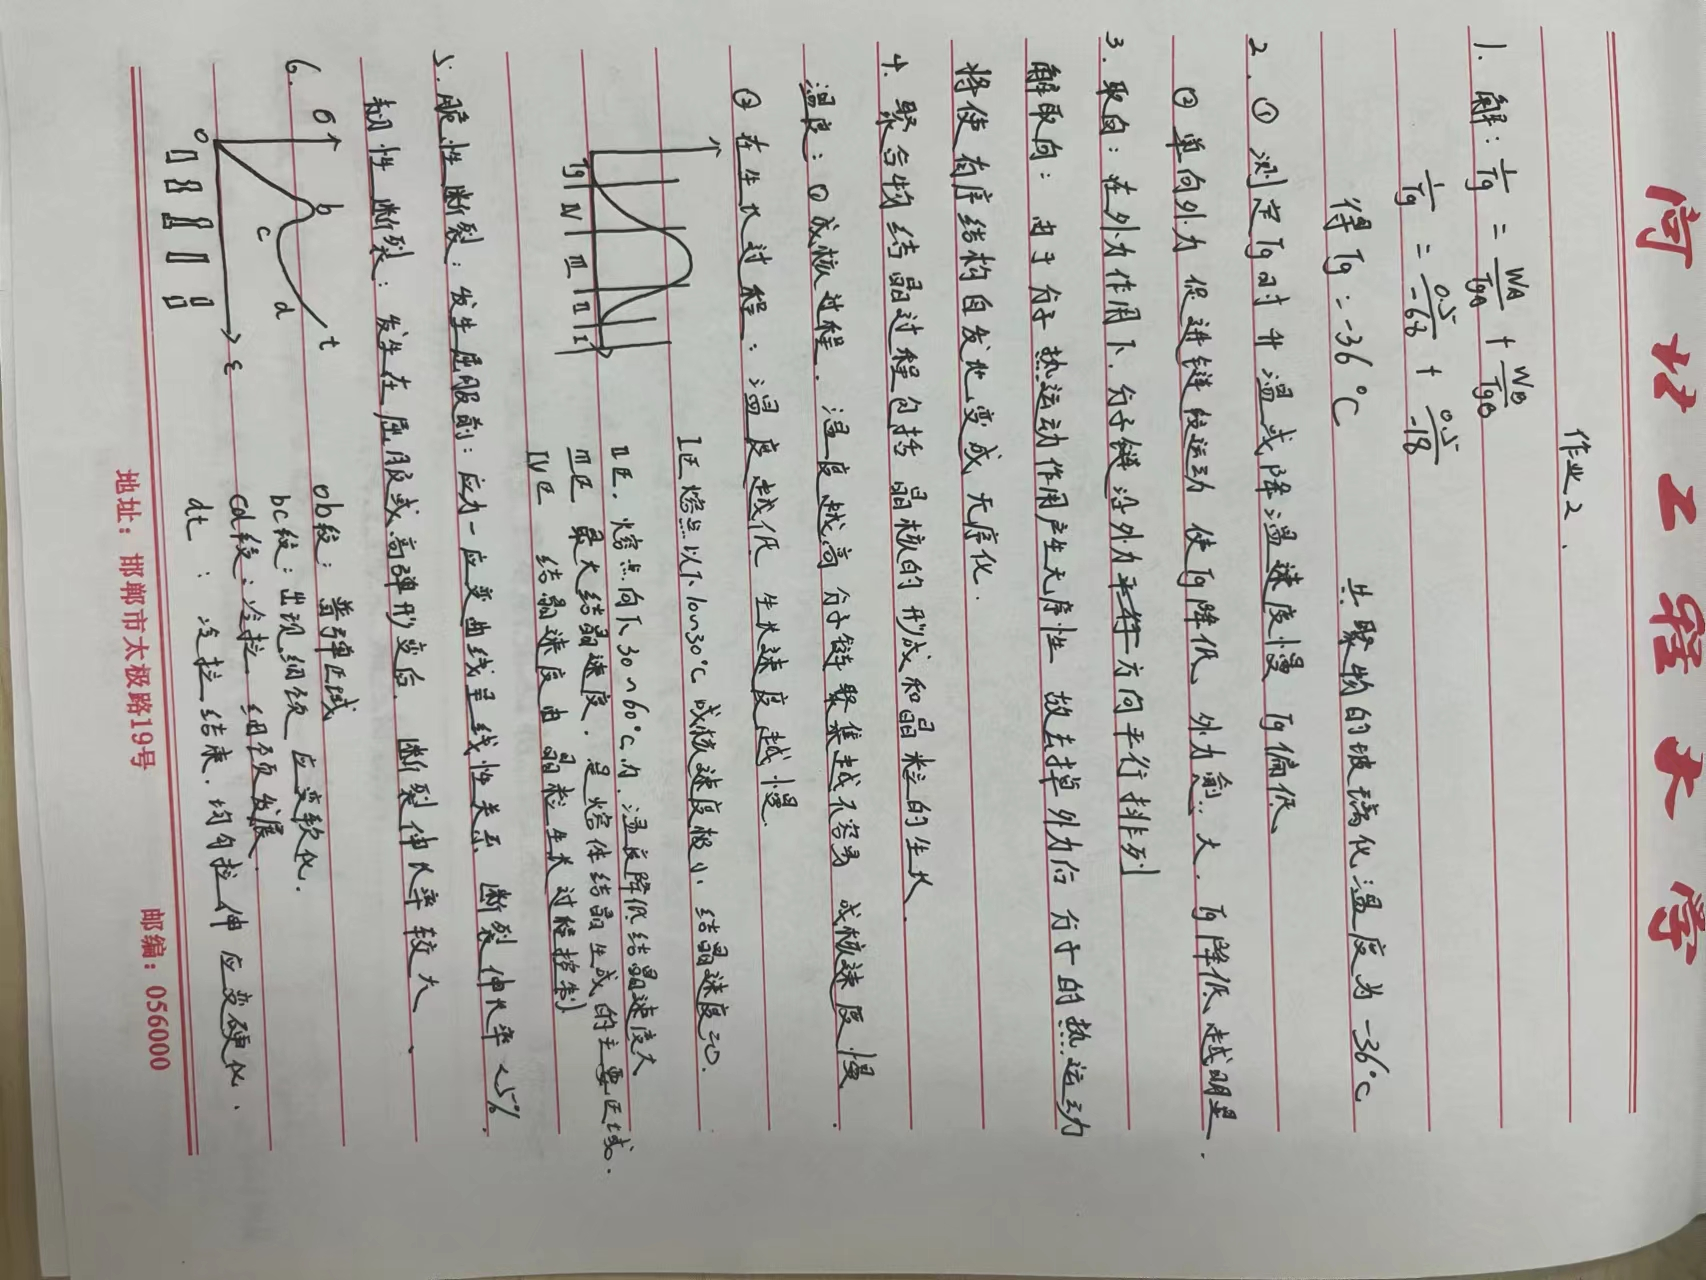 河北工程大学
作业2.
1. 解: 1/Tg = WA/TgA + WB/TgB
1/Tg = 0.5/-68 + 0.5/-18
得 Tg = -36℃ 共聚物的玻璃化温度为-36℃
2. ① 测定Tg时升温或降温速度慢 Tg偏低.
② 单向外力 促进链段运动 使Tg降低, 外力愈大. Tg降低越明显.
3. 取向: 在外力作用下. 分子链沿外力方向平行排列
解取向: 由于分子热运动作用产生无序性 故去掉外力后 分子的热运动
将使有序结构自发地变成无序化.
4. 聚合物结晶过程包括 晶核的形成和晶粒的生长.
温度: ①成核过程. 温度越高 分子链聚集越不容易 成核速度慢.
② 在生长过程: 温度越低 生长速度越慢.
Tg Ⅳ Ⅲ Ⅱ Ⅰ
Ⅰ区 熔点以下10~30℃ 成核速度极小. 结晶速度=0.
Ⅱ区. 熔点向下30~60℃内. 温度降低结晶速度大
Ⅲ区 最大结晶速度. 是熔体结晶生成的主要区域.
Ⅳ区 结晶速度由晶粒生长过程控制
5. 脆性断裂: 发生屈服前: 应力-应变曲线呈线性关系 断裂伸长率<5%.
韧性断裂: 发生在屈服或高弹形变后. 断裂伸长率较大、
6. σ o b c d t ε
ob段: 普弹区域
bc段: 出现细颈 应变软化.
cd段: 冷拉. 细颈发展
dt : 冷拉结束. 均匀拉伸 应变硬化.
地址: 邯郸市太极路19号 邮编: 056000